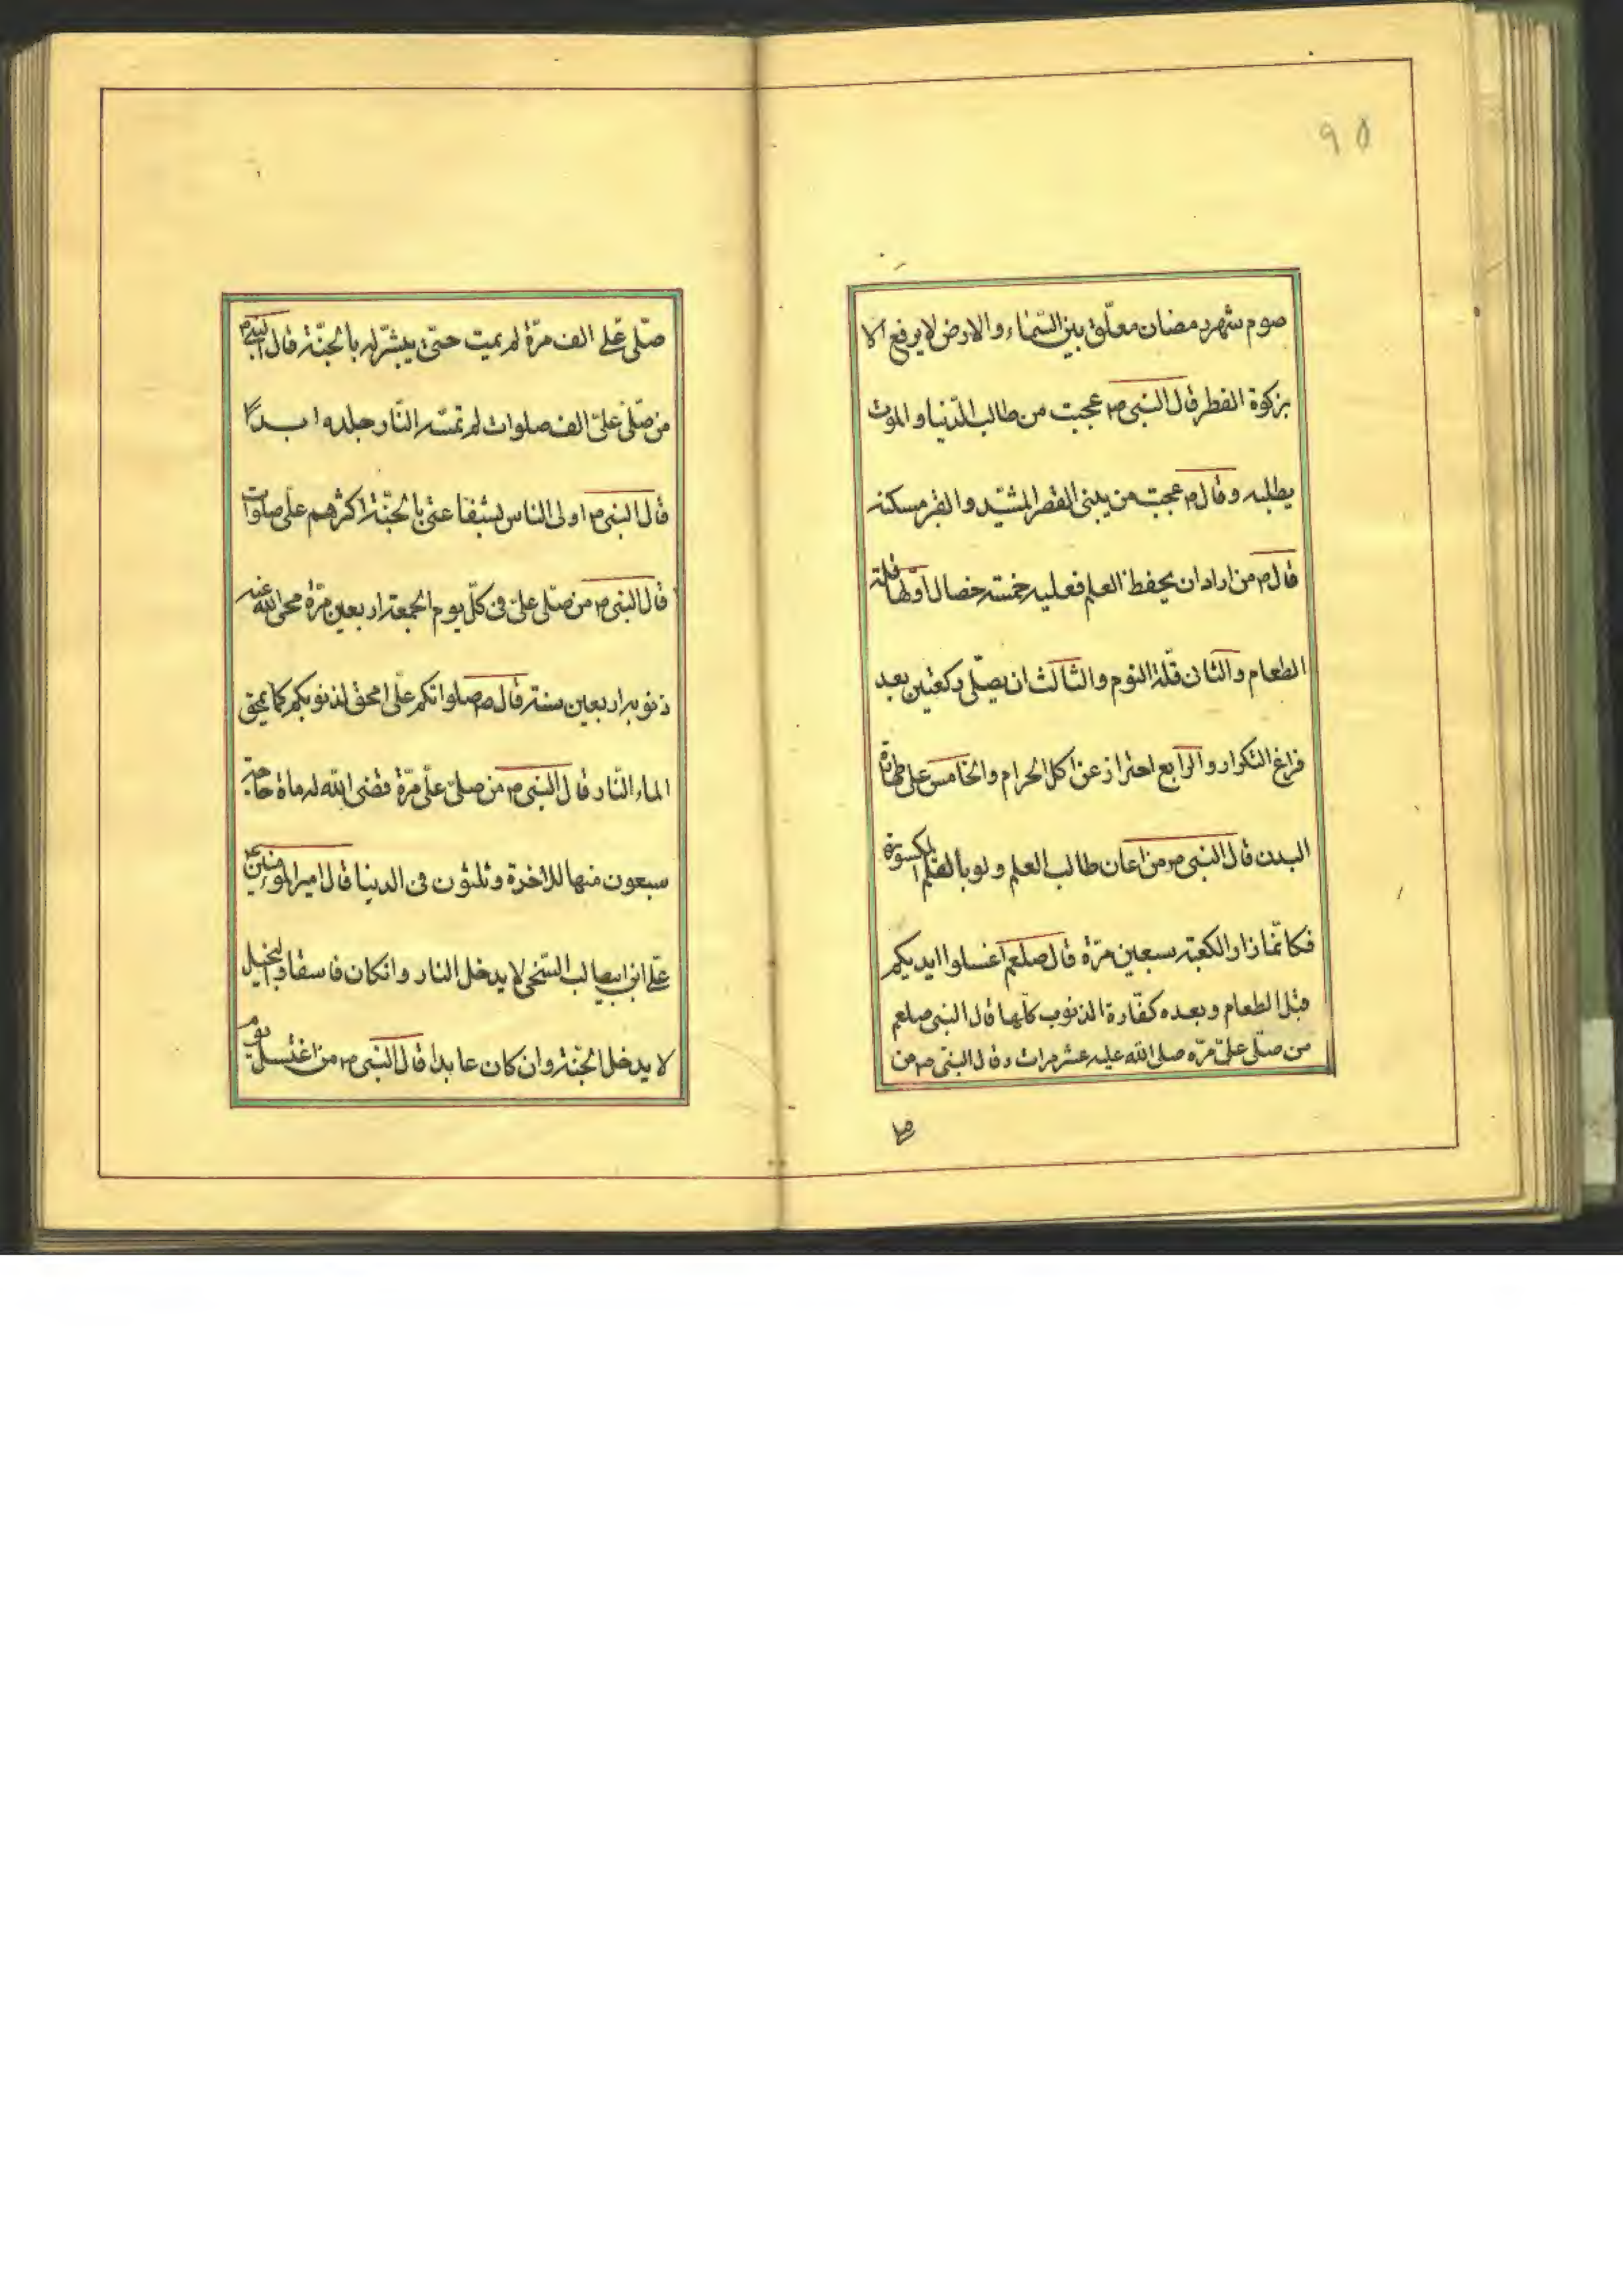 ٩٥
صوم شهر رمضان معلّق بين السّماء والارض لا يرفع الا
بزكوة الفطر قال النبى ص عجبت من طالب الدّنيا و الموت
يطلبه وقال ص عجبت من يبنى القصر المشيّد و القبر مسكنه
قال ص من اراد ان يحفظ العلم فعليه خمسة خصال اولها قلة
الطعام والثانى قلّة النوم والثالث ان يصلّى ركعتين بعد
فراغ التكرار والرابع احتراز عن اكل الحرام والخامس على طهارة
البدن قال النبى ص من اعان طالب العلم ولو بالقلم المكسورة
فكانّما زار الكعبة سبعين مرّة قال صلعم اغسلوا ايديكم
قبل الطعام و بعده كفّارة الذنوب كلّها قال النبى صلعم
من صلّى علىّ مرّه صلى الله عليه عشر مرات وقال النبىّ ص من
صلّى علىّ الف مرّة لم يميت حتى يبشّر له بالجنّة قال النبى ص
من صلّى علىّ الف صلوات لم تمسّه النّار جلده ابداً
قال النبى ص اولى الناس بشفاعتى بالجنّة اكثرهم علىّ صلوات
قال النبى ص من صلّى علىّ فى كلّ يوم الجمعة اربعين مرّة محى الله عنه
ذنوبه اربعين سنة قال ص صلواتكم علىّ امحق لذنوبكم كما يمحق
الماء النّار قال النبى ص من صلىّ علىّ مرّة قضى الله له ماة حاجة
سبعون منها للاخرة و ثلثون فى الدينا قال امير المومنين ع
علىّ ابن ابيطالب السّخى لا يدخل النار وانكان فاسقا والبخيل
لا يدخل الجنّة وان كان عابدا قال النبى ص من اغتسل يوم